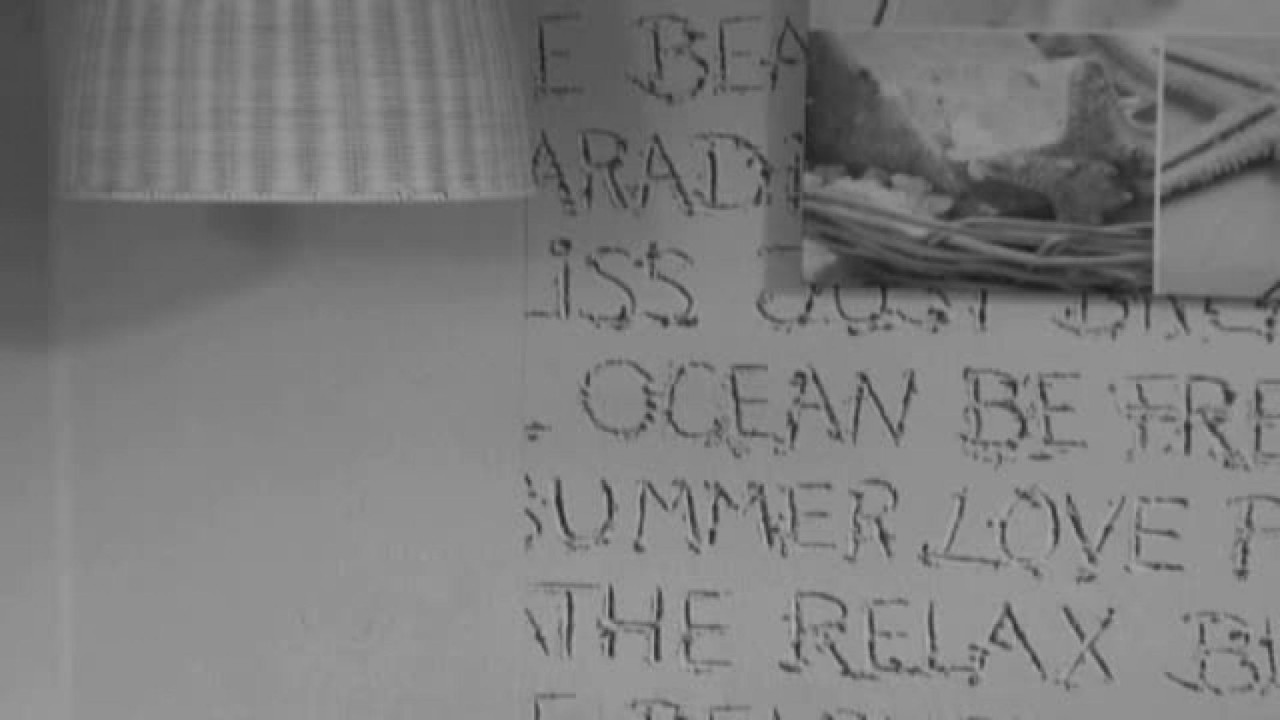 E BEA
ARADI
LISS JUST BREA
OCEAN BE FREE
SUMMER LOVE P
THE RELAX